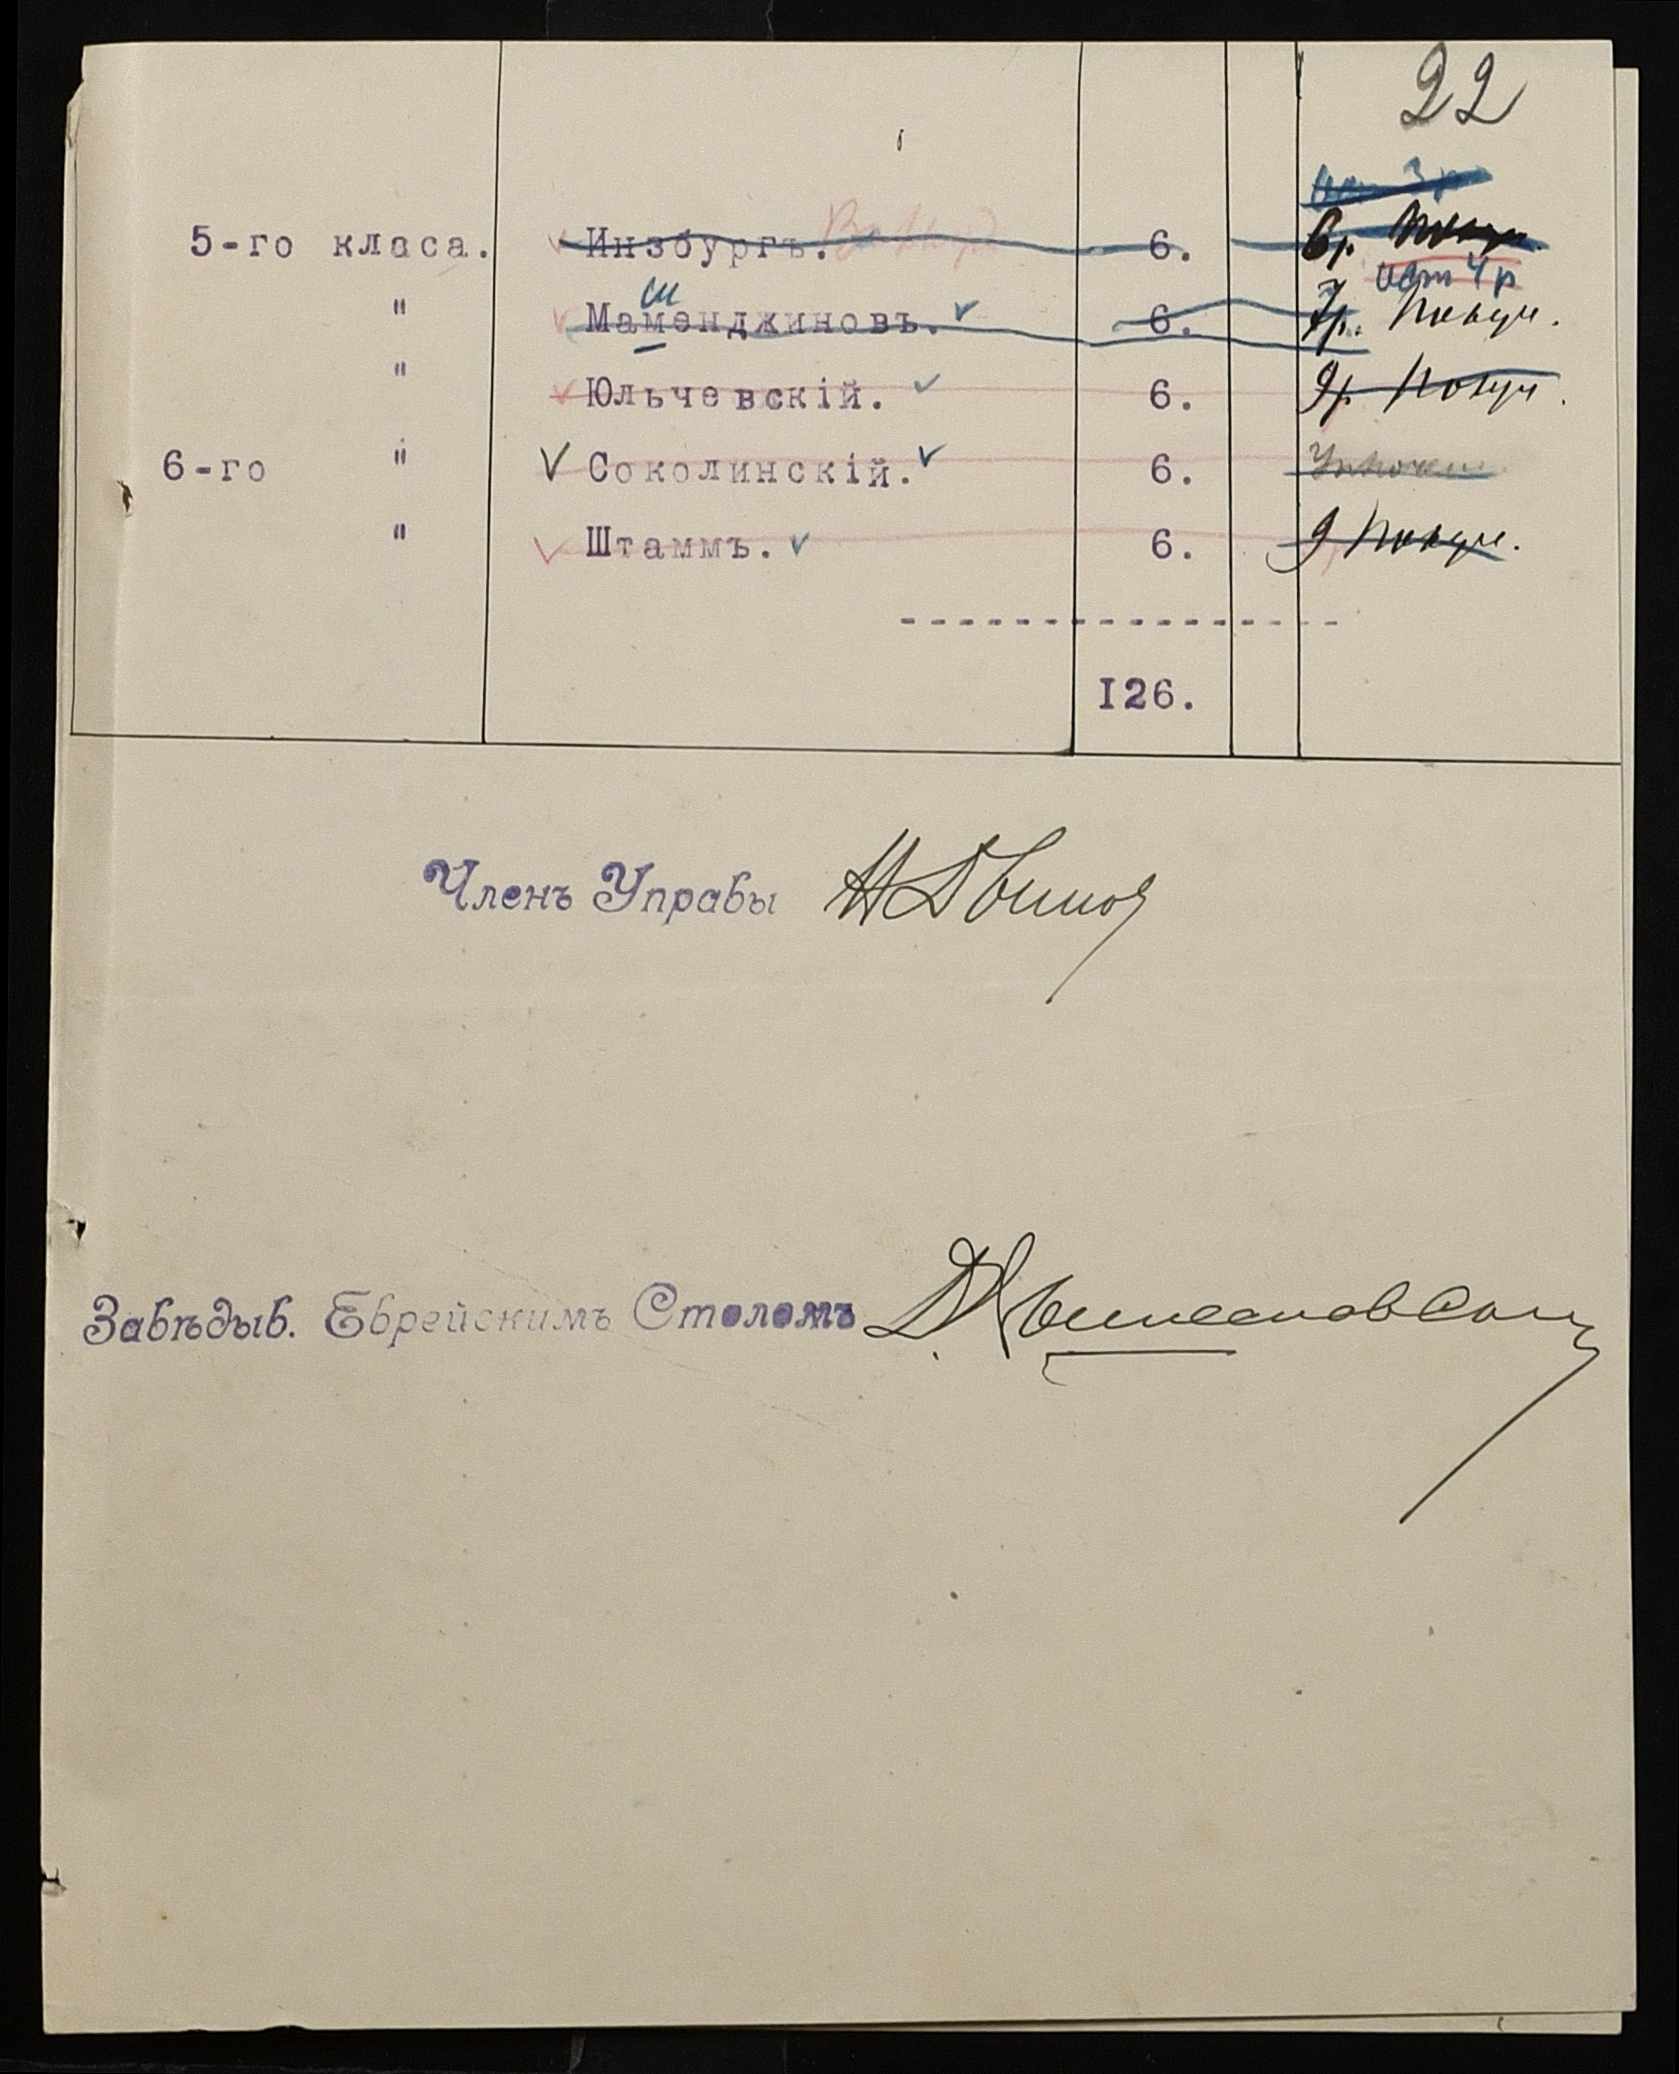 22
5-го класа. Инзбургъ. 6. 6р.
ост 4 р
ш
" Маменджиновъ. 6. 7р. Получ.
" Юльчевскій. 6. 9р. Получ.
6-го " Соколинскій. 6.
" Штаммъ. 6. 9 Получ.
126.
Членъ Управы
Завѣдыв. Еврейскимъ Столомъ